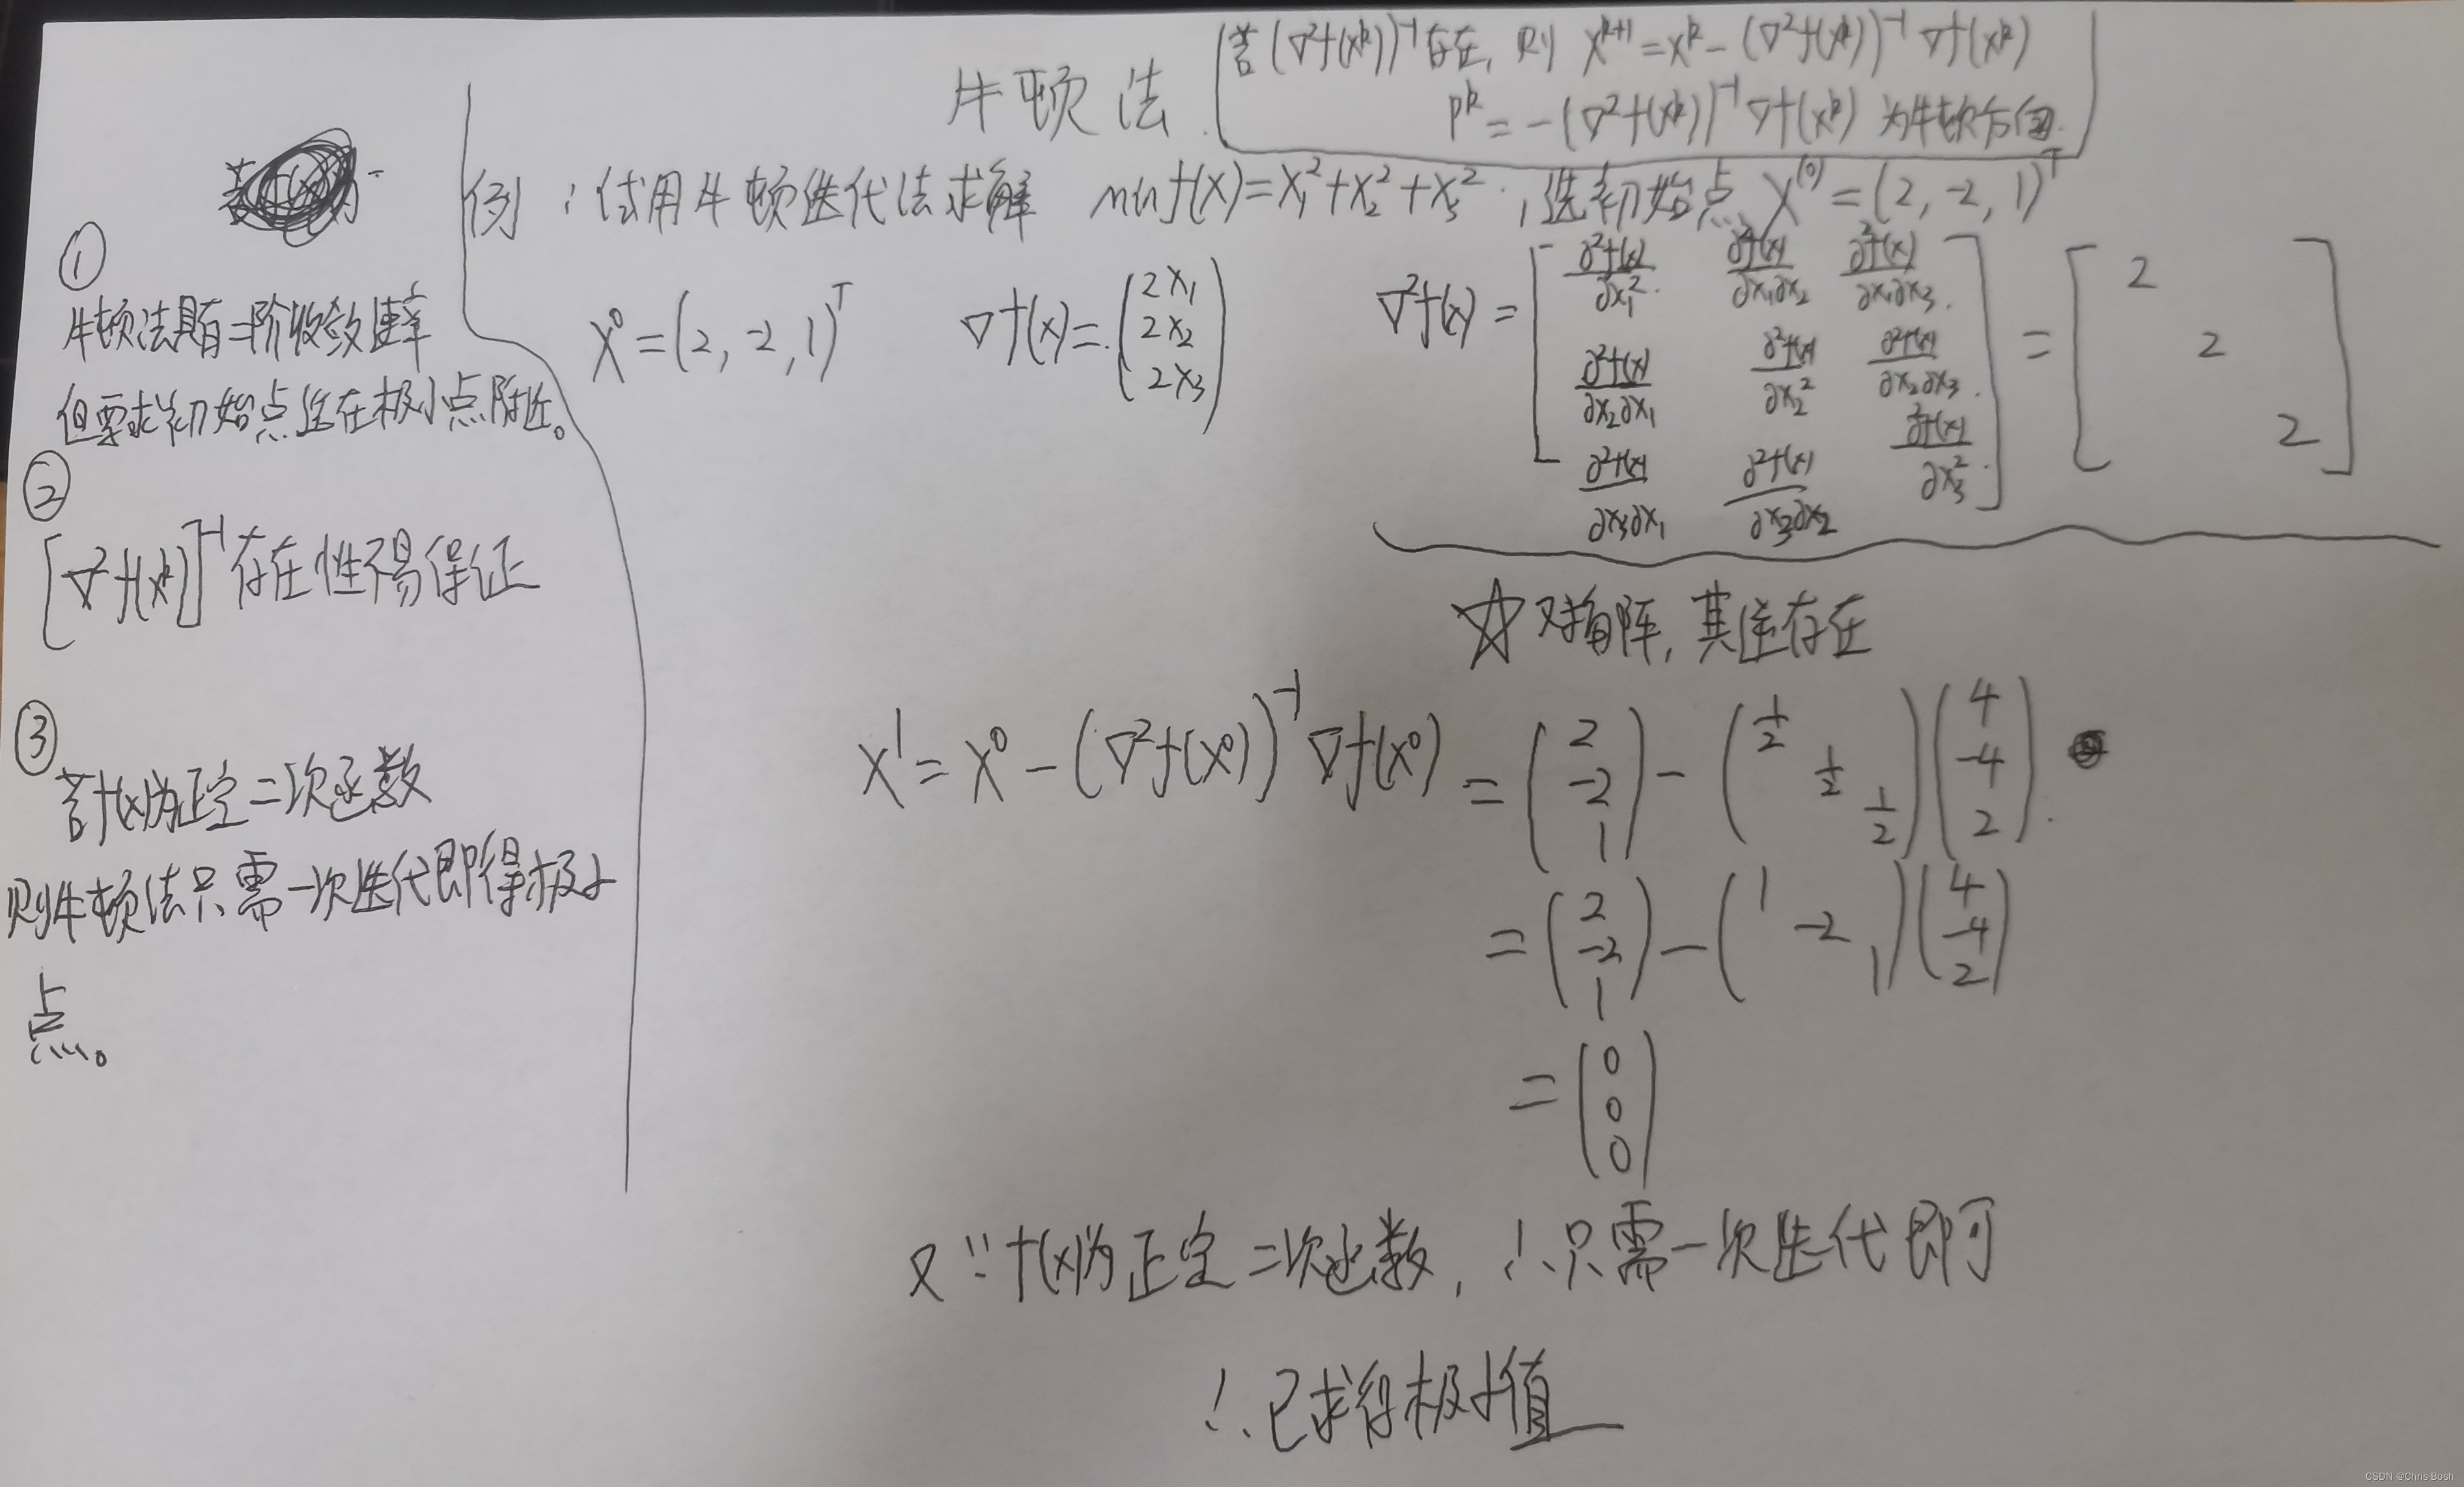 牛顿法
若(∇²f(x^k))^{-1}存在, 则 x^{k+1} = x^k - (∇²f(x^k))^{-1} ∇f(x^k)
p^k = -(∇²f(x^k))^{-1} ∇f(x^k) 为牛顿方向.
①
牛顿法具有二阶收敛速率
但要求初始点选在极小点附近。
②
[∇²f(x^k)]^{-1} 存在性不易保证
③
若f(x)为正定二次函数
则牛顿法只需一次迭代即得极小
点。
例:试用牛顿迭代法求解 min f(x) = x₁² + x₂² + x₃², 选初始点 X^{(0)} = (2, -2, 1)^T
X^0 = (2, -2, 1)^T ∇f(x) = (2x₁ 2x₂ 2x₃) ∇²f(x) = [∂²f(x)/∂x₁² ∂²f(x)/∂x₁∂x₂ ∂²f(x)/∂x₁∂x₃
∂²f(x)/∂x₂∂x₁ ∂²f(x)/∂x₂² ∂²f(x)/∂x₂∂x₃
∂²f(x)/∂x₃∂x₁ ∂²f(x)/∂x₃∂x₂ ∂²f(x)/∂x₃²] = [2 2 2]
☆对角阵, 其逆存在
X^1 = X^0 - (∇²f(X^0))^{-1} ∇f(X^0) = (2 -2 1) - (1/2 1/2 1/2)(4 -4 2).
= (2 -2 1) - (1 -2 1)(4 -4 2)
= (0 0 0)
又∵f(x)为正定二次函数, ∴只需一次迭代即可
∴已求得极小值
CSDN @Chris·Bosh